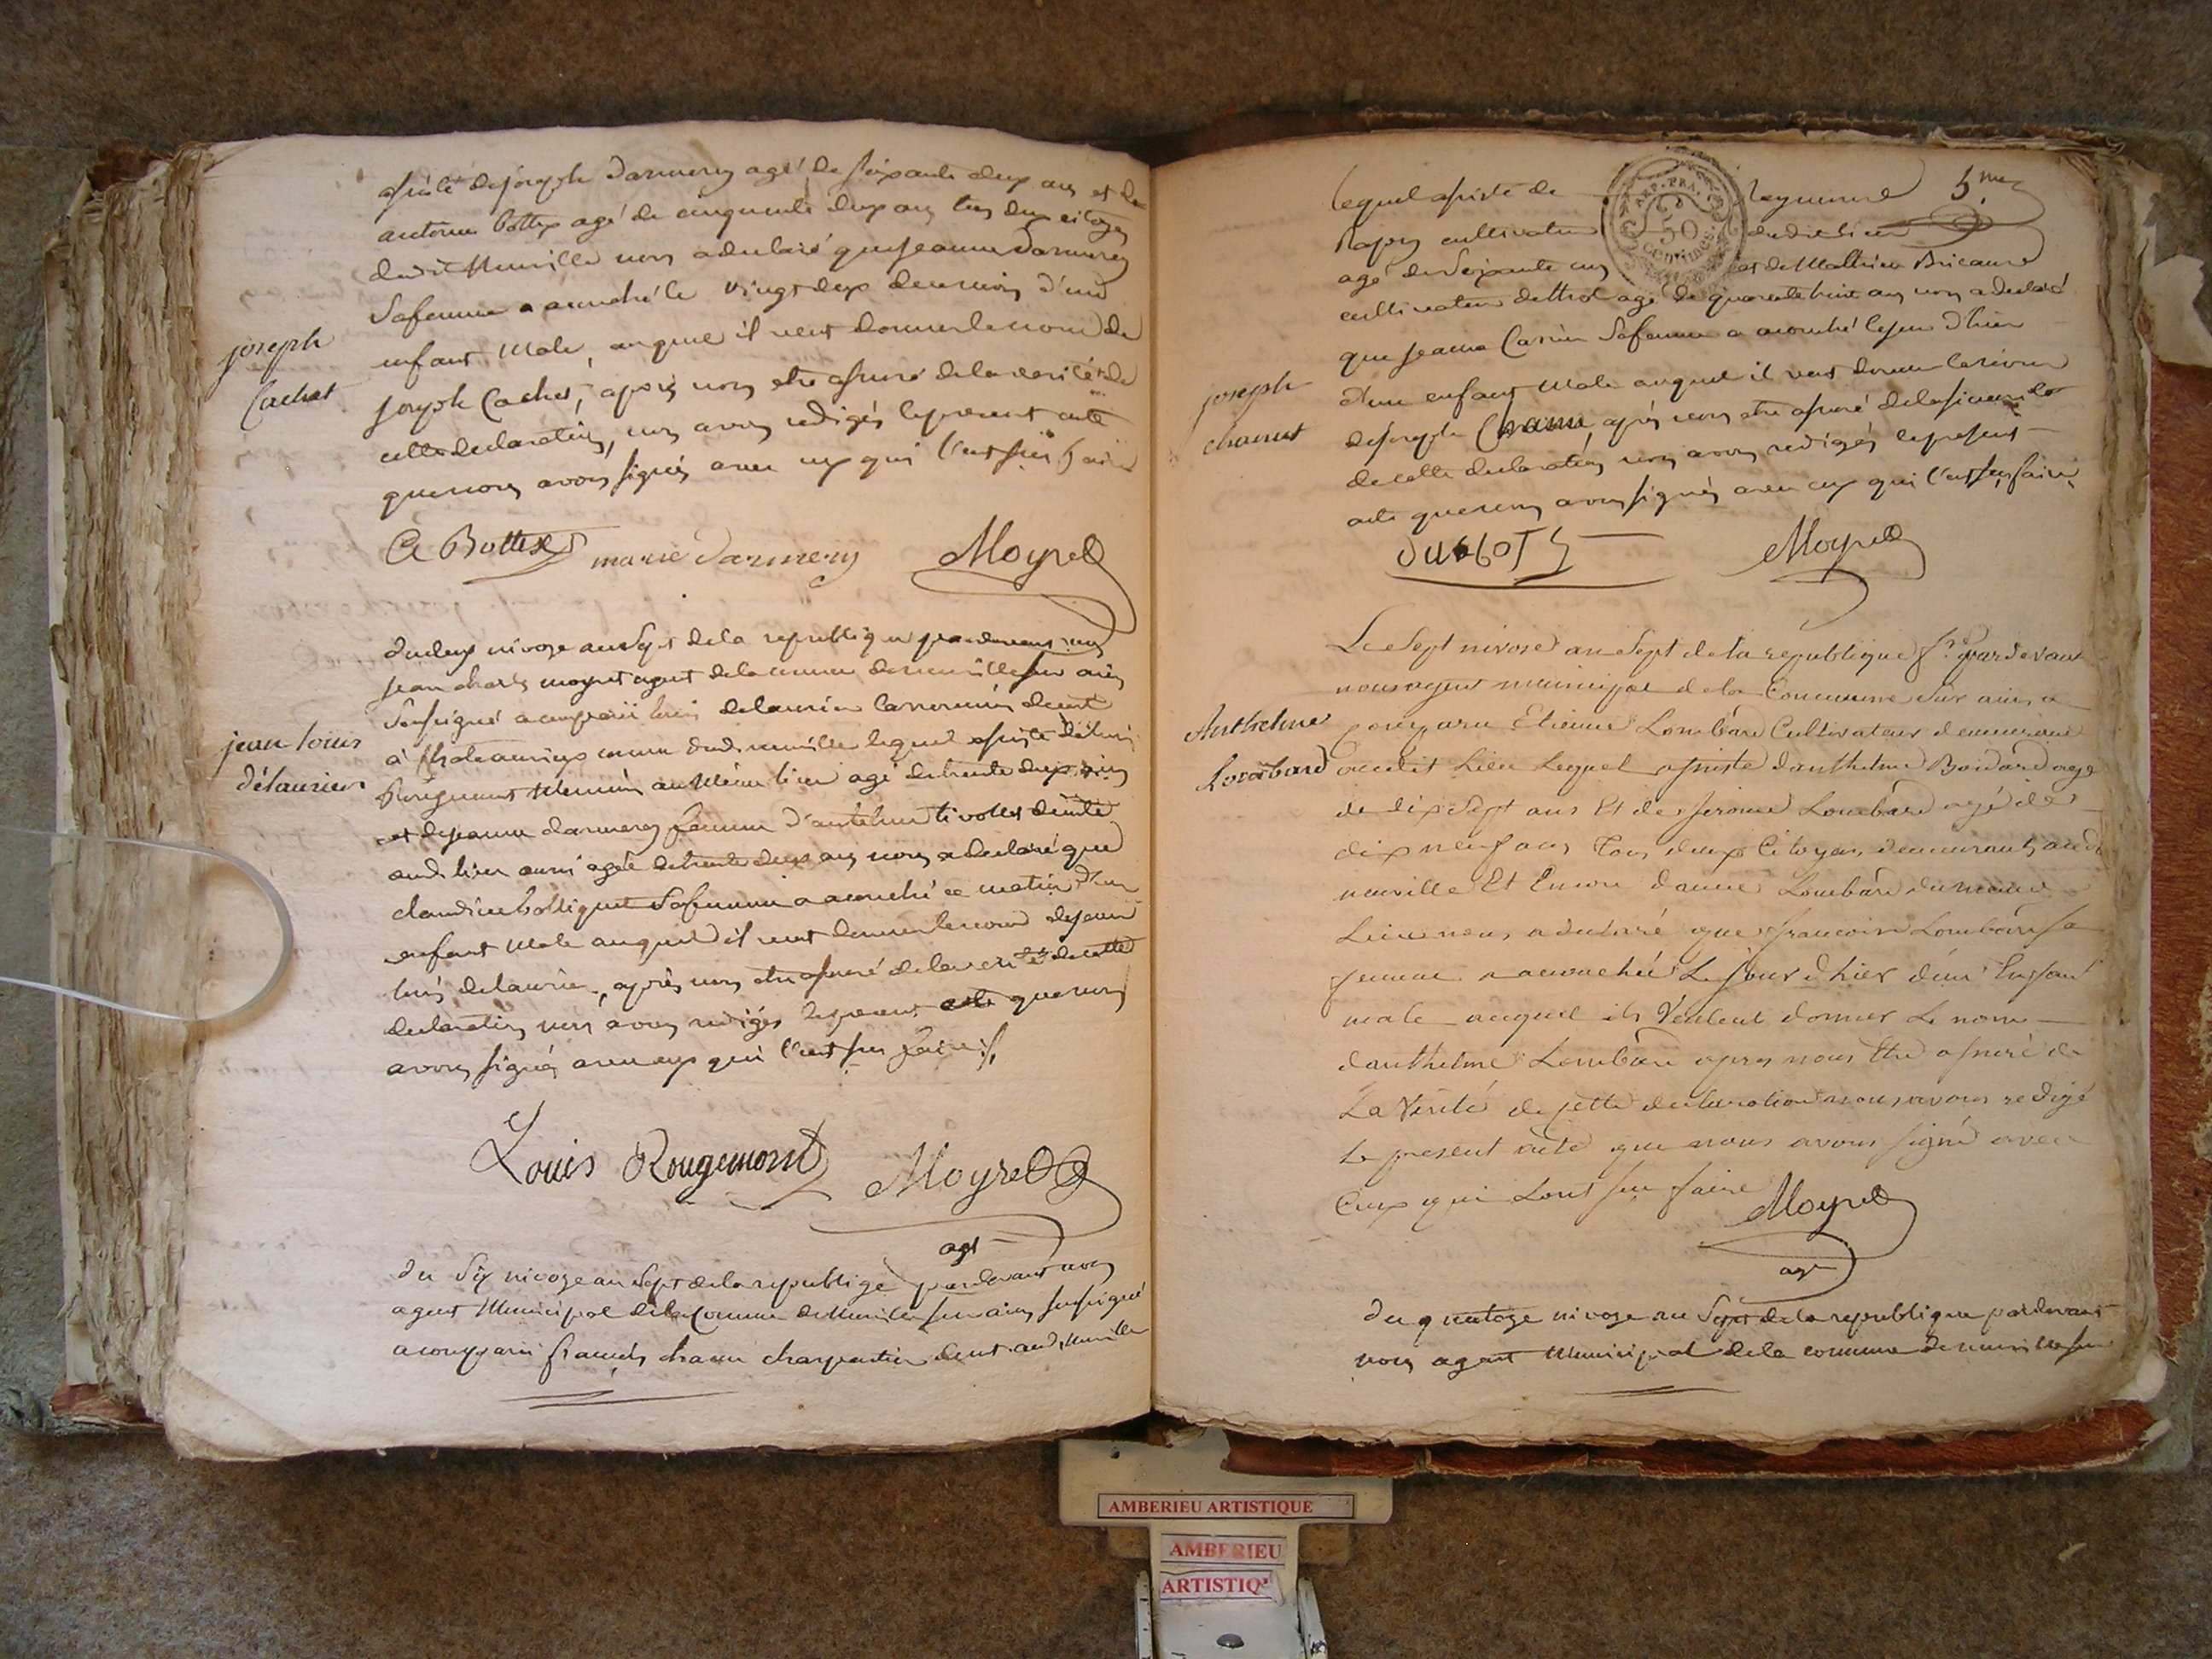 assisté de joseph Darmerey agé de soixante deux ans et de
antoine bottex agé de cinquante deux ans tous deux citoyen
dudit Neuville nous a declaré que jeanne Darmerey
Sa femme a accouché le vingt deux d'un
enfant Male, auquel il veut donner le nom de
joseph
Cachat
joseph Cachat, après nous etre assuré de la verité de
cette declaration, nous avons redigés le present acte
que nous avons signés avec eux qui l'ont sçu faire
A Bottex marie darmerey Moyret
du deux nivose an Sept de la republique pardevant nous
jean charles moyret agent de la commune de neuville sur ain
Soussigné a comparu louis delaurier demt
à Chateauvieux commune dud. neuville lequel assisté de louis
jean louis
délaurier
Rougemont au Même lieu agé de trente deux ans
et de jeanne darmerey femme d'antelme tivollet demte
aud. lieu aussi agée de trente deux ans nous a declaré que
claudine bolliquet Sa femme a accouché ce matin d'un
enfant Male auquel il veut donner le nom de jean
louis delaurier, après nous etre assuré de la verité de cette
declaration nous avons redigés le present acte que nous
avons signés avec eux qui l'ont sçu faire
Louis Rougemont Moyret
agt
du Six nivose an Sept de la republiqe pardevant nous
agent Municipal de la Comune de Neuville sur ain, soussigné
a comparu francois chanu charpentier demt aud. Neuville
lequel assisté de Reymond 5me
cultivateur dudit lieu
agé de Soixante ans et de Mathieu
cultivateur agé de quarante huit ans nous a declaré
que jeanne Sa femme a accouché le jour d'hier
d'un enfant Male auquel il veut donner le nom
joseph
chanut
de joseph Chanu, après nous etre assuré de la
de cette declaration nous avons redigés le present
acte que nous avons signés avec eux qui l'ont sçu faire
Moyret
Le Sept nivose an Sept de la republique fse pardevant
nous agent municipal de la Commune Sur ain, a
Anthelme
Lombard
comparu Etienne Lombard Cultivateur demeurant
audit Lieu Lequel assisté danthelme Boidard agé
de dix Sept ans Et de Jerome Lombard agé de
dix neuf ans Tous deux Citoyens demeurants aud.
neuville Et Encore Lombard du meme
Lieu nous a declaré que francoise Lombard sa
femme a accouchée Le jour d'hier d'un Enfant
male auquel ils Veulent donner Le nom
danthelme Lombard apres nous Etre assuré de
La Verité de cette declaration nous avons redigé
Le present acte que nous avons signé avec
Ceux qui Lont sçu faire
Moyret
agt
du quatoze nivose an Sept de la republique pardevant
nous agent Municipal de la commune de neuville sur
AMBERIEU ARTISTIQUE
AMBERIEU
ARTISTIQ